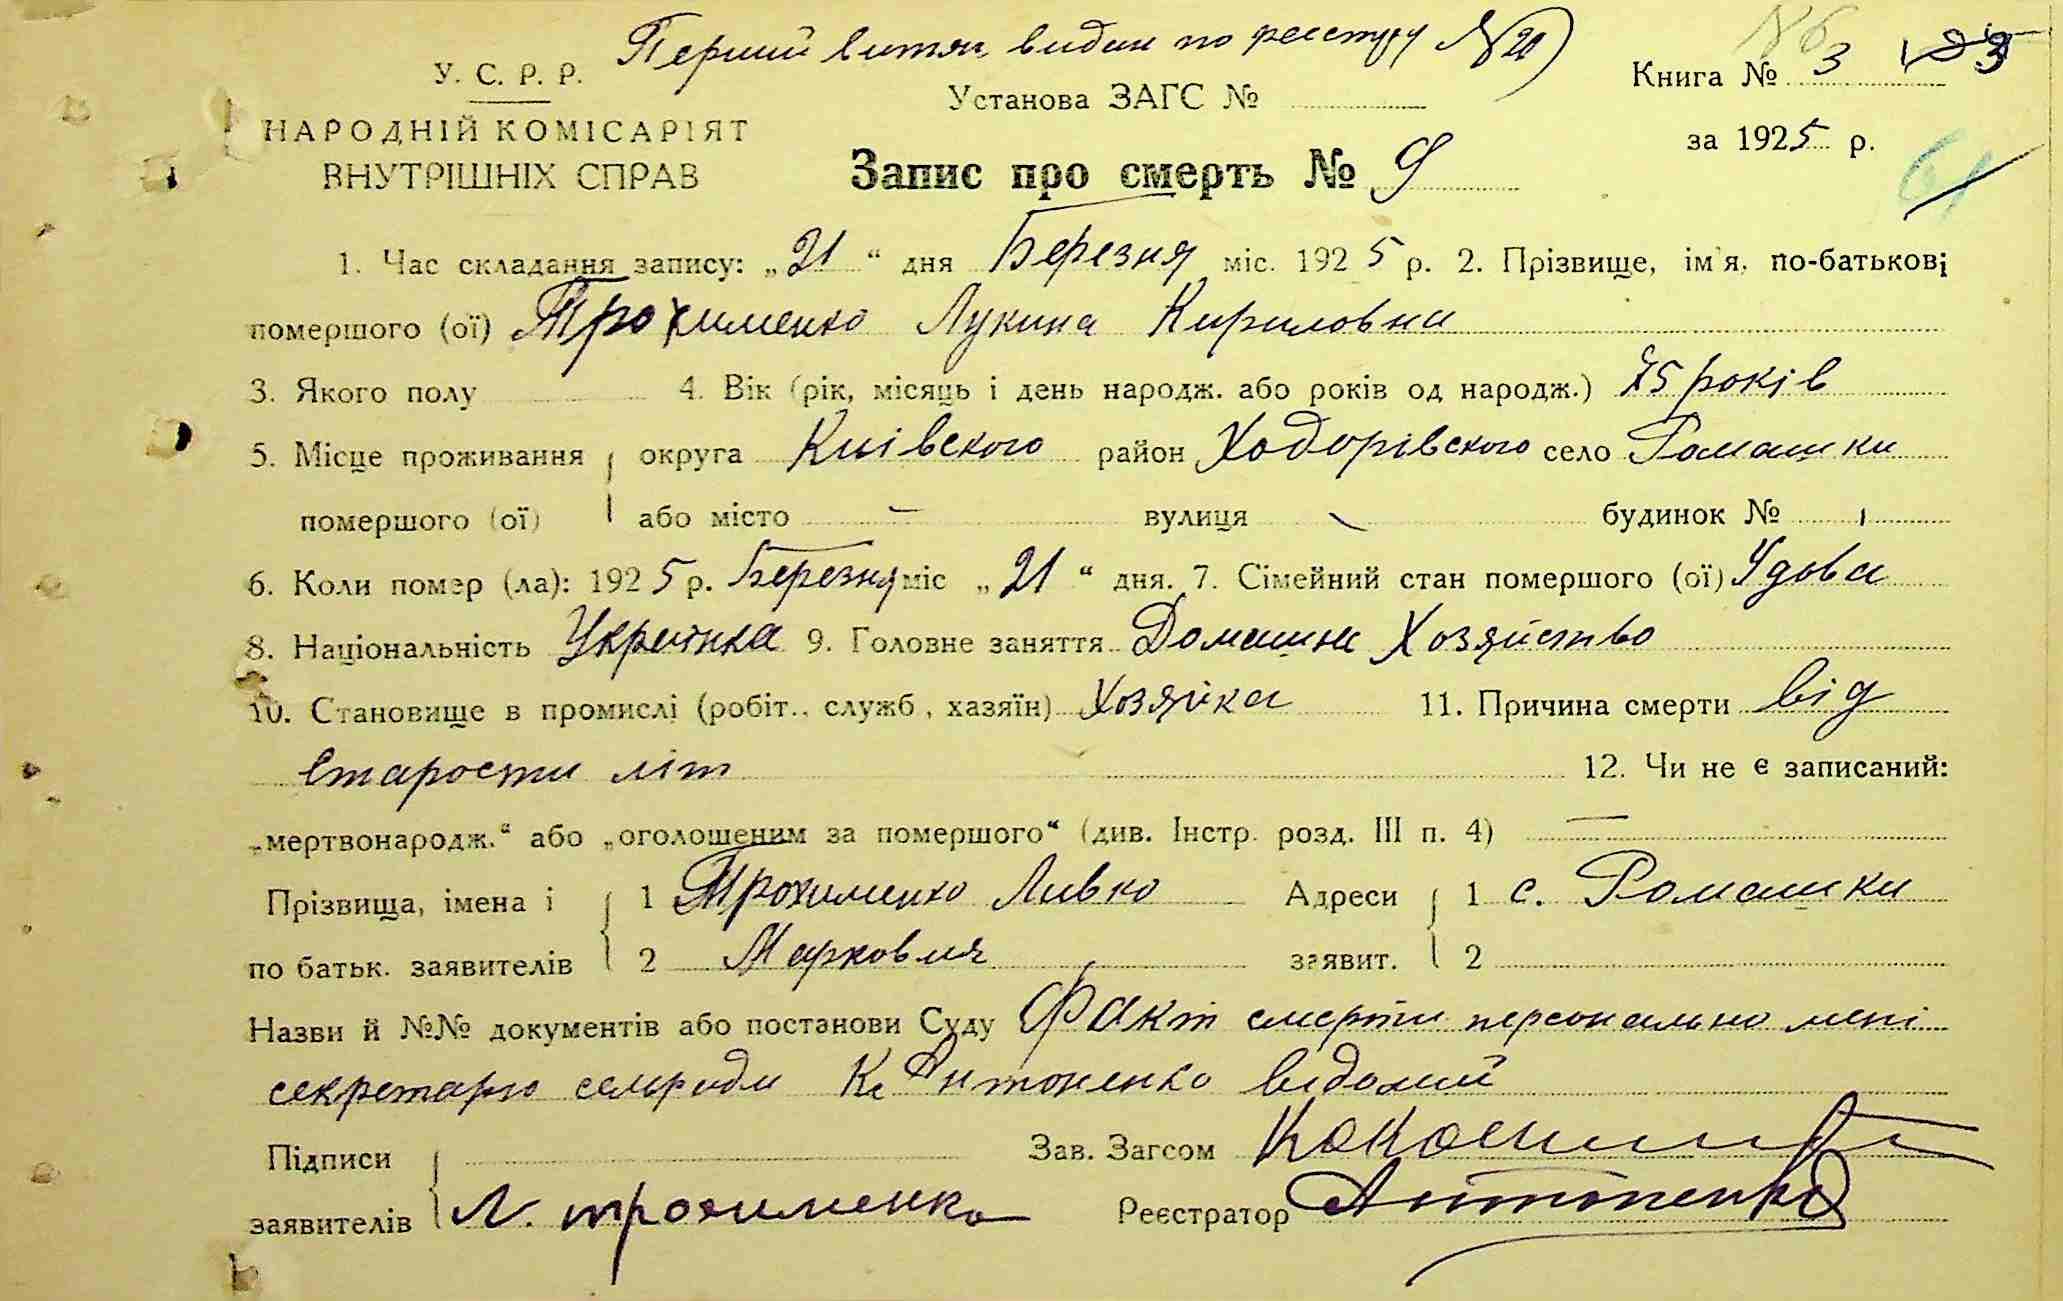 Перший витяг видан по реєстру №20)
У. С. Р. Р.
НАРОДНІЙ КОМІСАРІЯТ
ВНУТРІШНІХ СПРАВ
Установа ЗАГС №
Запис про смерть № 9
№6
Книга № 3
за 1925 р.
61
1. Час складання запису: „21“ дня Березня міс. 1925 р. 2. Прізвище, ім'я, по-батькові
помершого (ої) Трохименко Лукина Кириловна
3. Якого полу 4. Вік (рік, місяць і день народж. або років од народж.) 75 років
5. Місце проживання округа Київского район Ходорівского село Ромашки
помершого (ої) або місто — вулиця — будинок №
6. Коли помер (ла): 1925 р. Березня міс „21“ дня. 7. Сімейний стан помершого (ої) Удова
8. Національність Українка 9. Головне заняття Домашне Хозяйство
10. Становище в промислі (робіт., служб, хазяїн) Хозяйка 11. Причина смерти від
старости літ 12. Чи не є записаний:
„мертвонародж.“ або „оголошеним за помершого“ (див. Інстр. розд. III п. 4) —
Прізвища, імена і 1 Трохименко Ливко Адреси 1 с. Ромашки
по батьк. заявителів 2 Маркович заявит. 2
Назви й №№ документів або постанови Суду Факт смерти персонально мені
секретарю сельради К. Антоненко відомий
Підписи Зав. Загсом
заявителів Л. Трохименко Реєстратор Антоненко